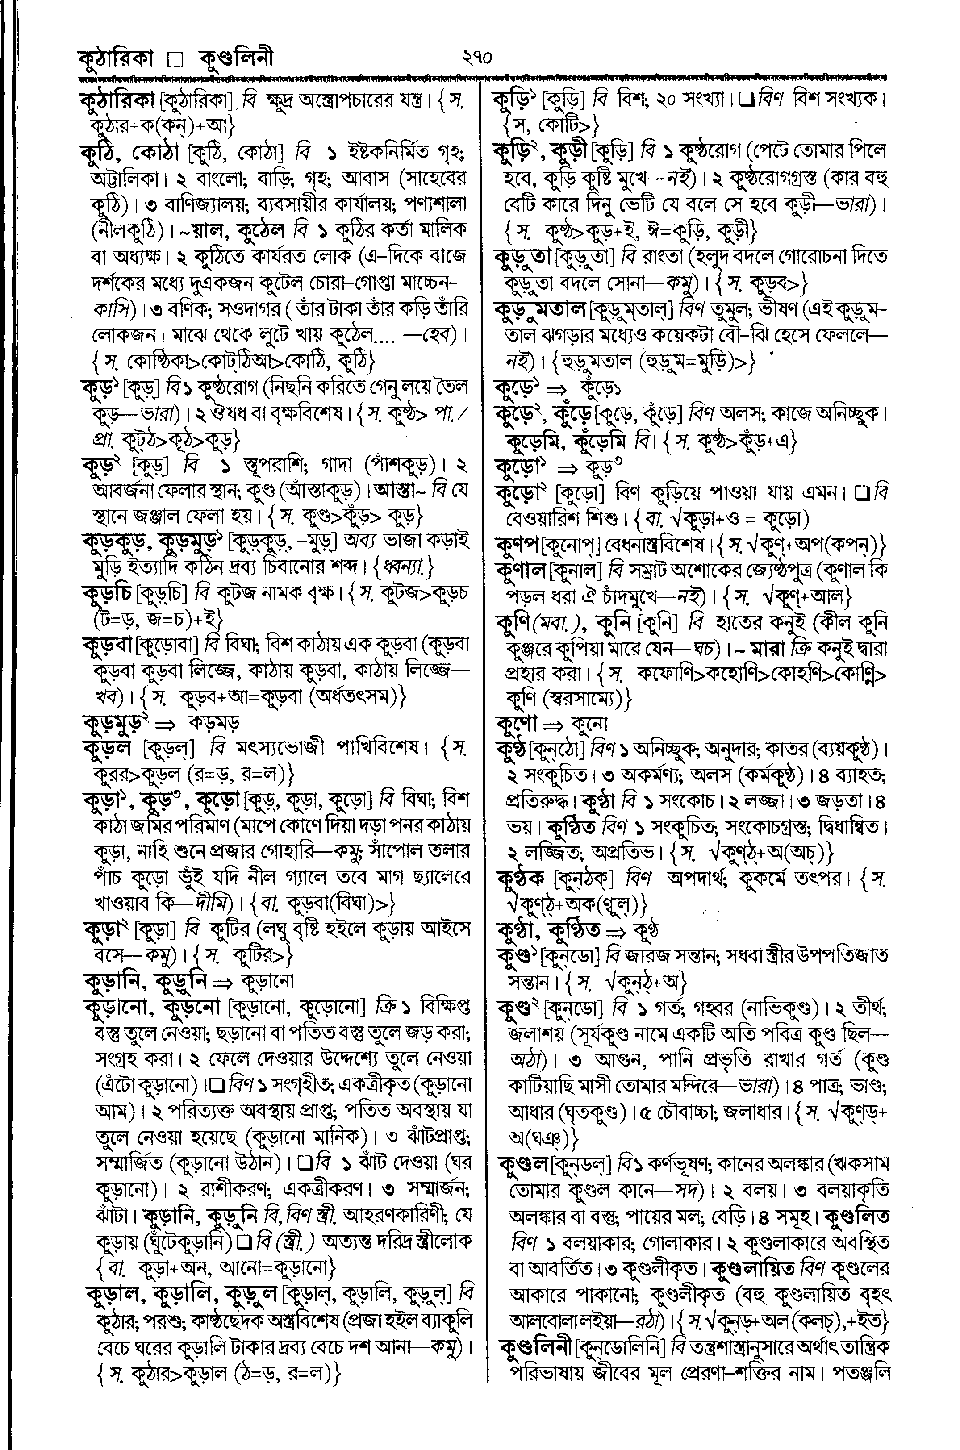 কুঠারিকা □ কুণ্ডলিনী
২৭০
কুঠারিকা [কুঠারিকা] বি ক্ষুদ্র অস্ত্রোপচারের যন্ত্র। {স.
কুঠার+ক(কন্)+আ}
কুঠি, কোঠা [কুঠি, কোঠা] বি ১ ইষ্টকনির্মিত গৃহ;
অট্টালিকা। ২ বাংলো; বাড়ি; গৃহ; আবাস (সাহেবের
কুঠি)। ৩ বাণিজ্যালয়; ব্যবসায়ীর কার্যালয়; পণ্যশালা
(নীলকুঠি)। ~য়াল, কুঠেল বি ১ কুঠির কর্তা মালিক
বা অধ্যক্ষ। ২ কুঠিতে কার্যরত লোক (এ-দিকে বাজে
দর্শকের মধ্যে দুএকজন কুটেল চোরা-গোপ্তা মাচ্চেন-
কাসি)। ৩ বণিক; সওদাগর (তাঁর টাকা তাঁর কড়ি তাঁরি
লোকজন। মাঝে থেকে লুটে খায় কুঠেল.... —হেব)।
{স. কোষ্ঠিকা>কোট্ঠিআ>কোঠি, কুঠি}
কুড়১ [কুড়্] বি ১ কুষ্ঠরোগ (নিছনি করিতে গেনু লয়ে তৈল
কুড়—ভারা)। ২ ঔষধ বা বৃক্ষবিশেষ। {স. কুষ্ঠ> পা./
প্রা. কুটঠ>কূঠ>কুড়}
কুড়২ [কুড়্] বি ১ স্তূপরাশি; গাদা (পাঁশকুড়)। ২
আবর্জনা ফেলার স্থান; কুণ্ড (আঁস্তাকুড়)। আস্তা~ বি যে
স্থানে জঞ্জাল ফেলা হয়। {স. কুণ্ড>কুঁড়> কুড়}
কুড়কুড়, কুড়মুড়১ [কুড়্কুড়্, -মুড়্] অব্য ভাজা কড়াই
মুড়ি ইত্যাদি কঠিন দ্রব্য চিবানোর শব্দ। {ধ্বন্যা.}
কুড়চি [কুড়্চি] বি কুটজ নামক বৃক্ষ। {স. কুটজ>কুড়চ
(ট=ড়, জ=চ)+ই}
কুড়বা [কুড়োবা] বি বিঘা; বিশ কাঠায় এক কুড়বা (কুড়বা
কুড়বা কুড়বা লিজ্জে, কাঠায় কুড়বা, কাঠায় লিজ্জে—
খব)। {স. কুড়ব+আ=কুড়বা (অর্ধতৎসম)}
কুড়মুড়২ ⇒ কড়মড়
কুড়ল [কুড়ল্] বি মৎস্যভোজী পাখিবিশেষ। {স.
কুরর>কুড়ল (র=ড়, র=ল)}
কুড়া১, কুড়৩, কুড়ো [কুড়্, কুড়া, কুড়ো] বি বিঘা; বিশ
কাঠা জমির পরিমাণ (মাপে কোণে দিয়া দড়া পনর কাঠায়
কুড়া, নাহি শুনে প্রজার গোহারি—কমু; সাঁপোল তলার
পাঁচ কুড়ো ভুঁই যদি নীল গ্যালে তবে মাগ ছ্যালেরে
খাওয়াব কি—দীমি)। {বা. কুড়বা(বিঘা)>}
কুড়া২ [কুড়া] বি কুটির (লঘু বৃষ্টি হইলে কুড়ায় আইসে
বসে—কমু)। {স. কুটির>}
কুড়ানি, কুড়ুনি ⇒ কুড়ানো
কুড়ানো, কুড়নো [কুড়ানো, কুড়োনো] ক্রি ১ বিক্ষিপ্ত
বস্তু তুলে নেওয়া; ছড়ানো বা পতিত বস্তু তুলে জড় করা;
সংগ্রহ করা। ২ ফেলে দেওয়ার উদ্দেশ্যে তুলে নেওয়া
(এঁটো কুড়ানো)। □ বিণ ১ সংগৃহীত; একত্রীকৃত (কুড়ানো
আম)। ২ পরিত্যক্ত অবস্থায় প্রাপ্ত; পতিত অবস্থায় যা
তুলে নেওয়া হয়েছে (কুড়ানো মানিক)। ৩ ঝাঁটপ্রাপ্ত;
সম্মার্জিত (কুড়ানো উঠান)। □ বি ১ ঝাঁট দেওয়া (ঘর
কুড়ানো)। ২ রাশীকরণ; একত্রীকরণ। ৩ সম্মার্জন;
ঝাঁটা। কুড়ানি, কুড়ুনি বি, বিণ স্ত্রী. আহরণকারিণী; যে
কুড়ায় (ঘুঁটেকুড়ানি) □ বি (স্ত্রী.) অত্যন্ত দরিদ্র স্ত্রীলোক
{বা. কুড়া+অন, আনো=কুড়ানো}
কুড়াল, কুড়ালি, কুড়ুল [কুড়াল্, কুড়ালি, কুড়ুল্] বি
কুঠার; পরশু; কাষ্ঠছেদক অস্ত্রবিশেষ (প্রজা হইল ব্যাকুলি
বেচে ঘরের কুড়ালি টাকার দ্রব্য বেচে দশ আনা—কমু)।
{স. কুঠার>কুড়াল (ঠ=ড়, র=ল)}
কুড়ি১ [কুড়ি] বি বিশ; ২০ সংখ্যা। □ বিণ বিশ সংখ্যক।
{স, কোটি>}
কুড়ি২, কুড়ী [কুড়ি] বি ১ কুষ্ঠরোগ (পেটে তোমার পিলে
হবে, কুড়ি কুষ্টি মুখে -নই)। ২ কুষ্ঠরোগগ্রস্ত (কার বহু
বেটি কারে দিনু ভেটি যে বলে সে হবে কুড়ী—ভারা)।
{স. কুষ্ঠ>কুড়+ই, ঈ=কুড়ি, কুড়ী}
কুড়ুতা [কুড়ুতা] বি রাংতা (হলুদ বদলে গোরোচনা দিতে
কুড়ুতা বদলে সোনা—কমু)। {স. কুড়ব>}
কুড়ুমতাল [কুড়ুম্তাল্] বিণ তুমুল; ভীষণ (এই কুড়ুম-
তাল ঝগড়ার মধ্যেও কয়েকটা বৌ-ঝি হেসে ফেললে—
নই)। {হুড়ুমতাল (হুড়ুম=মুড়ি)>}
কুড়ে১ ⇒ কুঁড়ে১
কুড়ে২, কুঁড়ে [কুড়ে, কুঁড়ে] বিণ অলস; কাজে অনিচ্ছুক।
কুড়েমি, কুঁড়েমি বি। {স. কুষ্ঠ>কুঁড়+এ}
কুড়ো১ ⇒ কুড়৩
কুড়ো২ [কুড়ো] বিণ কুড়িয়ে পাওয়া যায় এমন। □ বি
বেওয়ারিশ শিশু। {বা. √কুড়া+ও = কুড়ো)
কুণপ [কুনোপ্] বেধনাস্ত্রবিশেষ। {স. √কুণ্+অপ(কপন্)}
কুণাল [কুনাল্] বি সম্রাট অশোকের জ্যেষ্ঠপুত্র (কুণাল কি
পড়ল ধরা ঐ চাঁদমুখে—নই)। {স. √কুণ্+আল}
কুণি (মবা.), কুনি [কুনি] বি হাতের কনুই (কীল কুনি
কুঞ্জরে কুপিয়া মারে যেন—ঘচ)। ~ মারা ক্রি কনুই দ্বারা
প্রহার করা। {স. কফোণি>কহোণি>কোহণি>কোণ্ণি>
কুণি (স্বরসাম্যে)}
কুণো ⇒ কুনো
কুণ্ঠ [কুন্ঠো] বিণ ১ অনিচ্ছুক; অনুদার; কাতর (ব্যয়কুণ্ঠ)।
২ সংকুচিত। ৩ অকর্মণ্য; অলস (কর্মকুণ্ঠ)। ৪ ব্যাহত;
প্রতিরুদ্ধ। কুণ্ঠা বি ১ সংকোচ। ২ লজ্জা। ৩ জড়তা। ৪
ভয়। কুণ্ঠিত বিণ ১ সংকুচিত; সংকোচগ্রস্ত; দ্বিধান্বিত।
২ লজ্জিত; অপ্রতিভ। {স. √কুণ্ঠ্+অ(অচ্)}
কুণ্ঠক [কুন্ঠক্] বিণ অপদার্থ; কুকর্মে তৎপর। {স.
√কুণ্ঠ্+অক(ণ্বুল্)}
কুণ্ঠা, কুণ্ঠিত ⇒ কুণ্ঠ
কুণ্ড১ [কুন্ডো] বি জারজ সন্তান; সধবা স্ত্রীর উপপতিজাত
সন্তান। {স. √কুনঠ+অ}
কুণ্ড২ [কুন্ডো] বি ১ গর্ত; গহ্বর (নাভিকুণ্ড)। ২ তীর্থ;
জলাশয় (সূর্যকুণ্ড নামে একটি অতি পবিত্র কুণ্ড ছিল—
অঠা)। ৩ আগুন, পানি প্রভৃতি রাখার গর্ত (কুণ্ড
কাটিয়াছি মাসী তোমার মন্দিরে—ভারা)। ৪ পাত্র; ভাণ্ড;
আধার (ঘৃতকুণ্ড)। ৫ চৌবাচ্চা; জলাধার। {স. √কুণ্ড্+
অ(ঘঞ্)}
কুণ্ডল [কুন্ডল্] বি ১ কর্ণভূষণ; কানের অলঙ্কার (ঋকসাম
তোমার কুণ্ডল কানে—সদ)। ২ বলয়। ৩ বলয়াকৃতি
অলঙ্কার বা বস্তু; পায়ের মল; বেড়ি। ৪ সমূহ। কুণ্ডলিত
বিণ ১ বলয়াকার; গোলাকার। ২ কুণ্ডলাকারে অবস্থিত
বা আবর্তিত। ৩ কুণ্ডলীকৃত। কুণ্ডলায়িত বিণ কুণ্ডলের
আকারে পাকানো; কুণ্ডলীকৃত (বহু কুণ্ডলায়িত বৃহৎ
আলবোলা লইয়া—রঠা)। {স. √কুনড্+অল(কলচ্),+ইত}
কুণ্ডলিনী [কুন্ডোলিনি] বি তন্ত্রশাস্ত্রানুসারে অর্থাৎ তান্ত্রিক
পরিভাষায় জীবের মূল প্রেরণা-শক্তির নাম। পতঞ্জলি